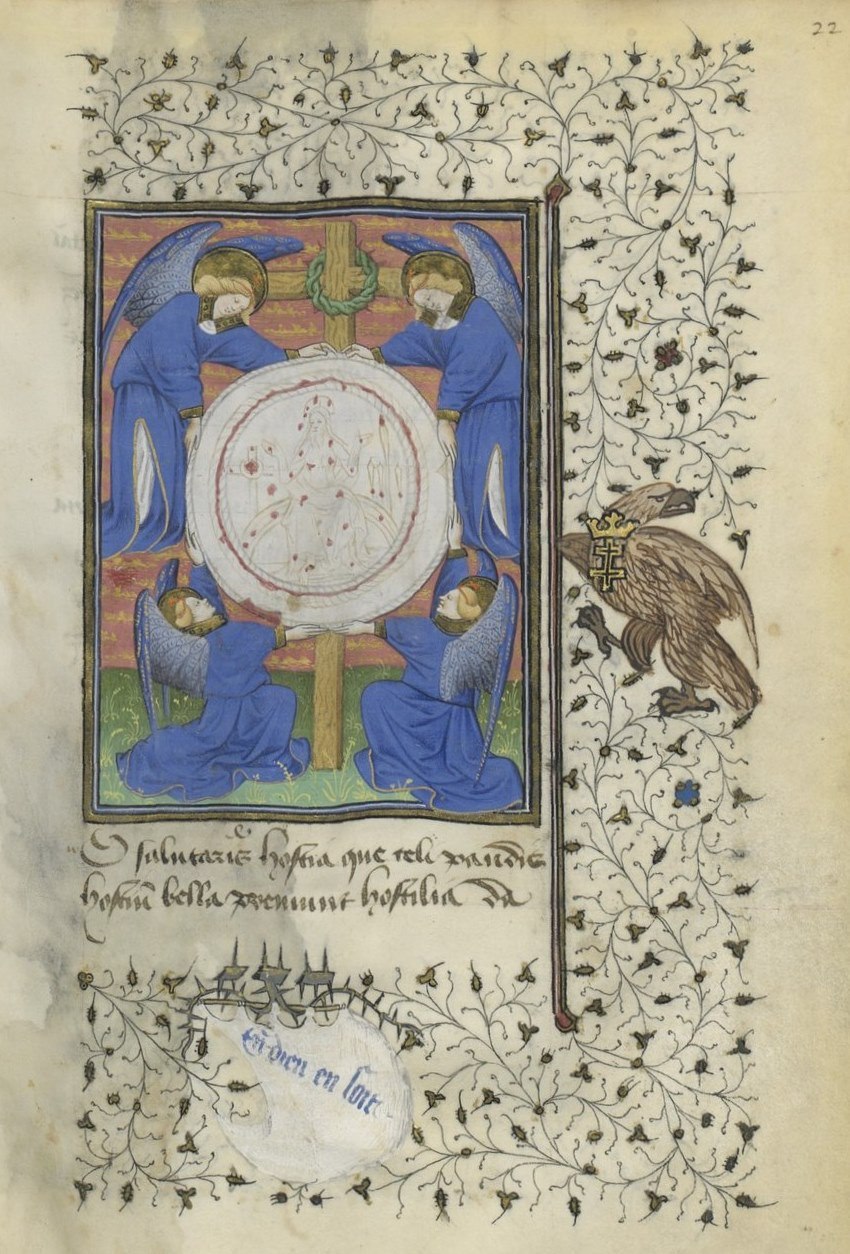 22
O salutaris hostia que celi pandis
hostiũ bella premunt hostilia da
En dieu en soit